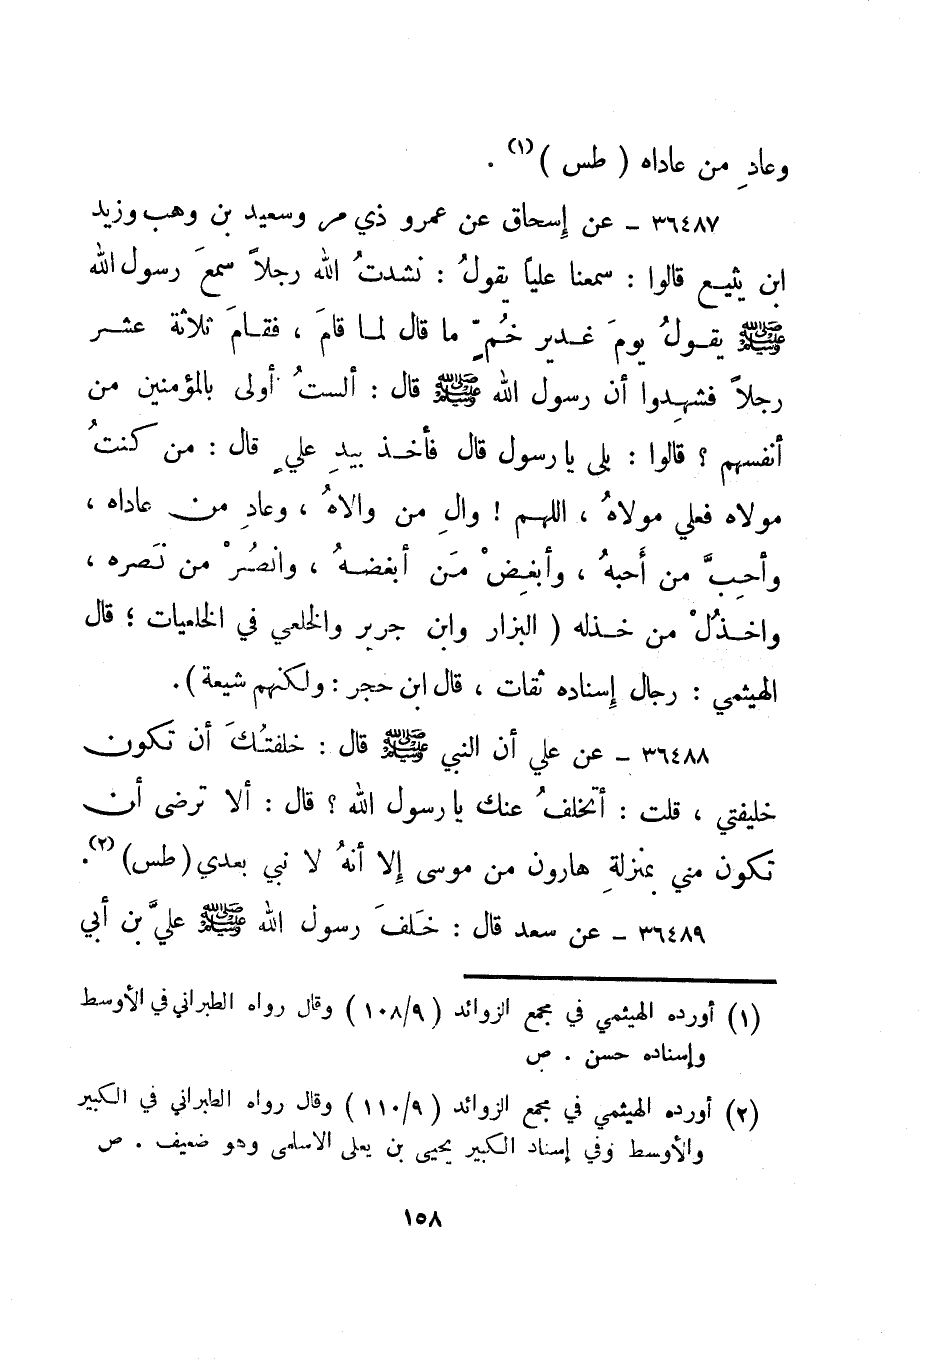 وعادِ من عاداه ( طس )(١) .
٣٦٤٨٧ – عن إسحاق عن عمرو ذي مر وسعيد بن وهب وزيد
ابن يثيـع قالوا : سمعنا علياً يقولُ : نشدتُ الله رجلاً سمعَ رسول الله
ﷺ يقـولُ يومَ غـدير خُمٍّ ما قال لمـا قامَ ، فقـامَ ثلاثة عشـر
رجلاً فشهدوا أن رسول الله ﷺ قال : ألستُ أولى بالمؤمنين من
أنفسهم ؟ قالوا : بلى يا رسول قال فأخـذ بيدِ عليٍ قال : من كنتُ
مولاه فعلي مولاهُ ، اللهم ! والِ من والاهُ ، وعادِ من عاداه ،
وأحِبَّ من أَحبهُ ، وأبغِضْ مَن أبغضـهُ ، وانصُرْ من نَصره ،
واخـذُلْ من خـذله ( البزار وابن جرير والخلعي في الخلعيات ؛ قال
الهيثمي : رجال إسناده ثقات ، قال ابن حجر : ولكنهم شيعة ).
٣٦٤٨٨ – عن علي أن النبي ﷺ قال : خلفتُكَ أن تكون
خليفتي ، قلت : أتخلفُ عنك يا رسول الله ؟ قال : ألا ترضى أن
تكون مني بمنزلةِ هارون من موسى إلا أنهُ لا نبي بعدي ( طس )(٢).
٣٦٤٨٩ – عن سعد قال : خَلفَ رسولُ الله ﷺ عليَّ بن أبي
(١) أورده الهيثمي في مجمع الزوائد ( ١٠٨/٩ ) وقال رواه الطبراني في الأوسط
وإسناده حسن . ص
(٢) أورده الهيثمي في مجمع الزوائد ( ١١٠/٩ ) وقال رواه الطبراني في الكبير
والأوسط وفي إسناد الكبير يحيى بن يعلى الاسلمي وهو ضعيف . ص
١٥٨